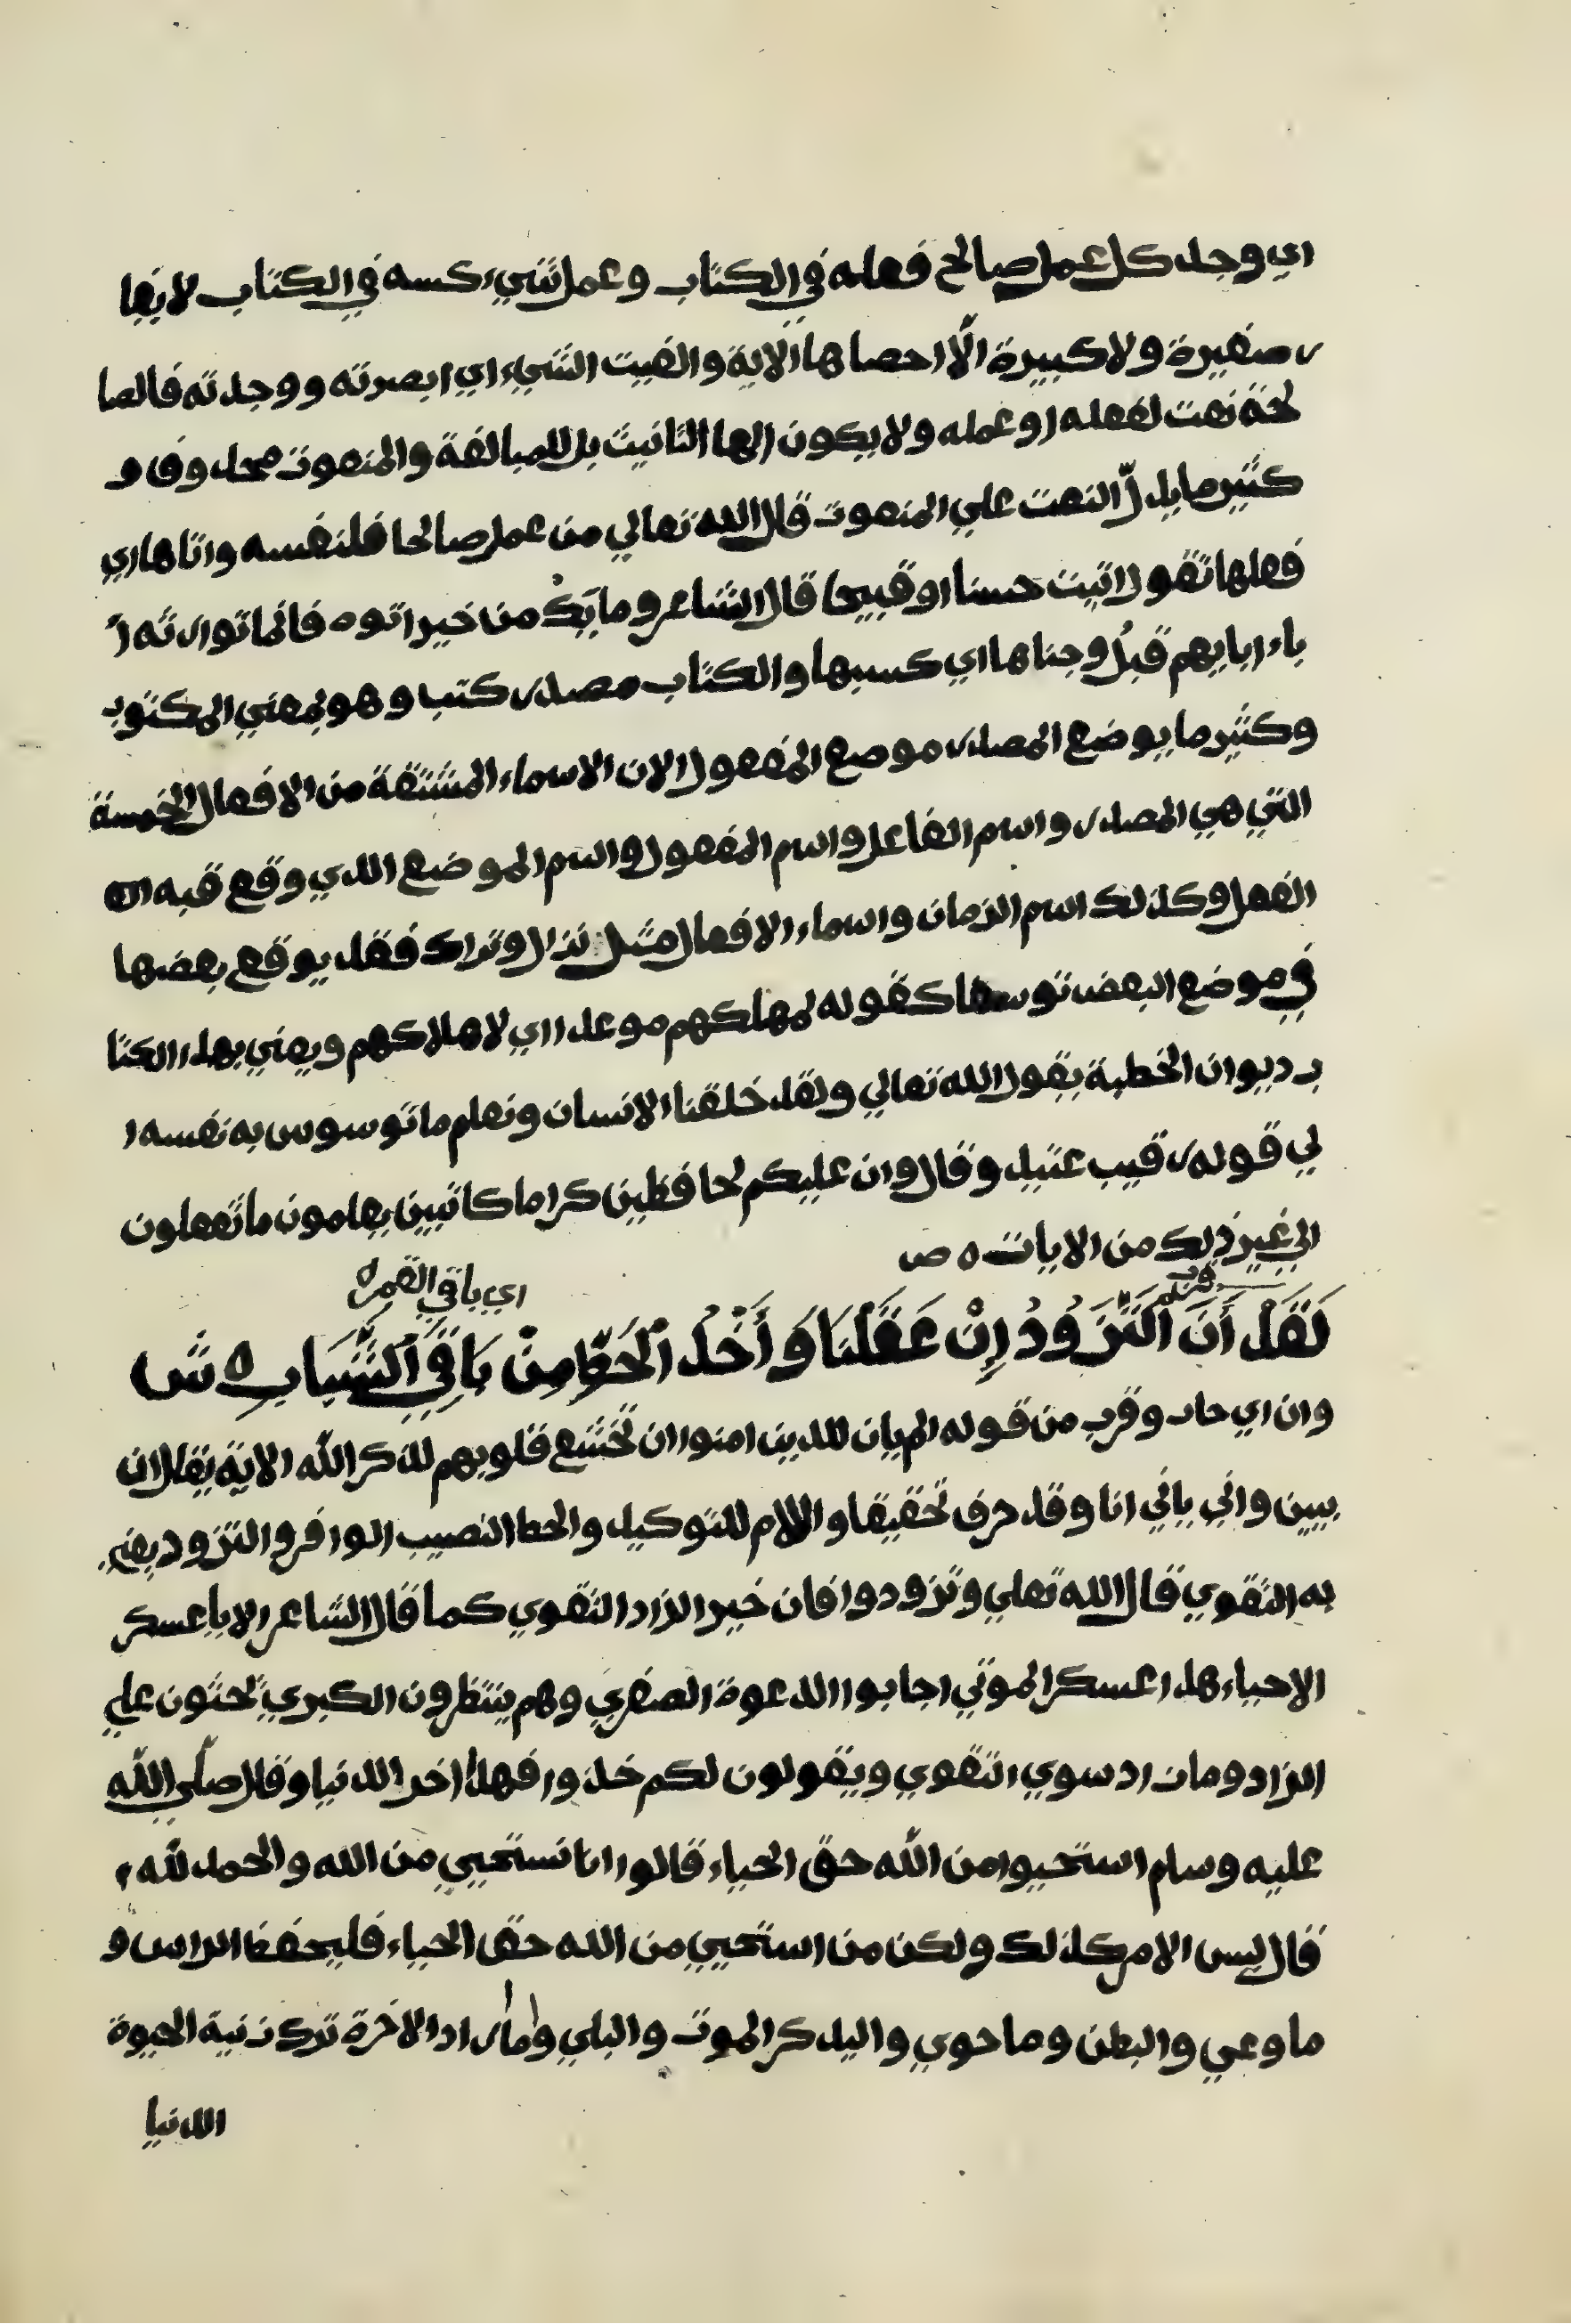 اي وجد كل عمل صالح فعله في الكتاب وعمل شيء كسبه في الكتاب لا يغا
ر صغيرة ولا كبيرة الّا احصاها الاية والفيت الشيء اي ابصرته ووجدته فالصا
لحة نعت لفعله او عمله ولا يكون الها التانيث بل للمبالغة والمنعوت محذوف و
كثير ما يدلّ النعت علي المنعوت قال الله تعالي من عمل صالحا فلنفسه واتاها اي
فعلها تقول اتيت حسنا او قبيحا قال الشاعر وما يَكُ من خير اتوه فانما توارثه اٰ
باء ابايهم قبلُ وجناها اي كسبها والكتاب مصدر كتب وهو بمعني المكتوب
وكثير ما يوضع المصدر موضع المفعول لان الاسماء المشتقة من الافعال الخمسة
التي هي المصدر واسم الفاعل واسم المفعول واسم الموضع الذي وقع فيه
الفعل وكذلك اسم الزمان واسماء الافعال مثل نزال وتراك فقد يوقع بعضها
في موضع البعض توسعا كقوله لمهلكهم موعدا اي لاهلاكهم ويعني بهذا الكتا
ب ديوان الخطية يقول الله تعالي ولقد خلقنا الانسان ونعلم ما توسوس به نفسه ا
لي قوله رقيب عتيد وقال وان عليكم لحافظين كراما كاتبين يعلمون ما تفعلون
الي غير ذلك من الايات ه ص
اي باقي العمر ه
لَقَدْ أَنَ التَّزَوُّدُ إِنْ عَقَلْنَا وَ أَخْذُ الْحَظِّ مِنْ بَاقِي الشَّبَابِ ه ش
وان اي حان وقرب من قوله الم يان للذين امنوا ان تخشع قلوبهم لذكر الله الاية يقال ان
يبين واني ياني انا وقد حرف تحقيقا واللام للتوكيد والحظ النصيب الوافر والتزود يعني
به التقوي قال الله تعلي وتزودوا فان خير الزاد التقوي كما قال الشاعر الا يا عسكر
الاحياء هذا عسكر الموتي اجابوا الدعوة الصغري وهم ينتظرون الكبري يحثون علي
الزاد وما زاد سوي التقوي ويقولون لكم خذوا فهذا اخر الدنيا وقال صلي الله
عليه وسلم استحيوا من الله حق الحياء قالوا انا نستحيي من الله والحمد لله
قال ليس الامر كذلك ولكن من استحيي من الله حق الحياء فليحفظ الراس و
ما وعي والبطن وما حوي واليذكر الموت والبلي وما راد الاخرة ترك زنية الحيوة
الدنيا